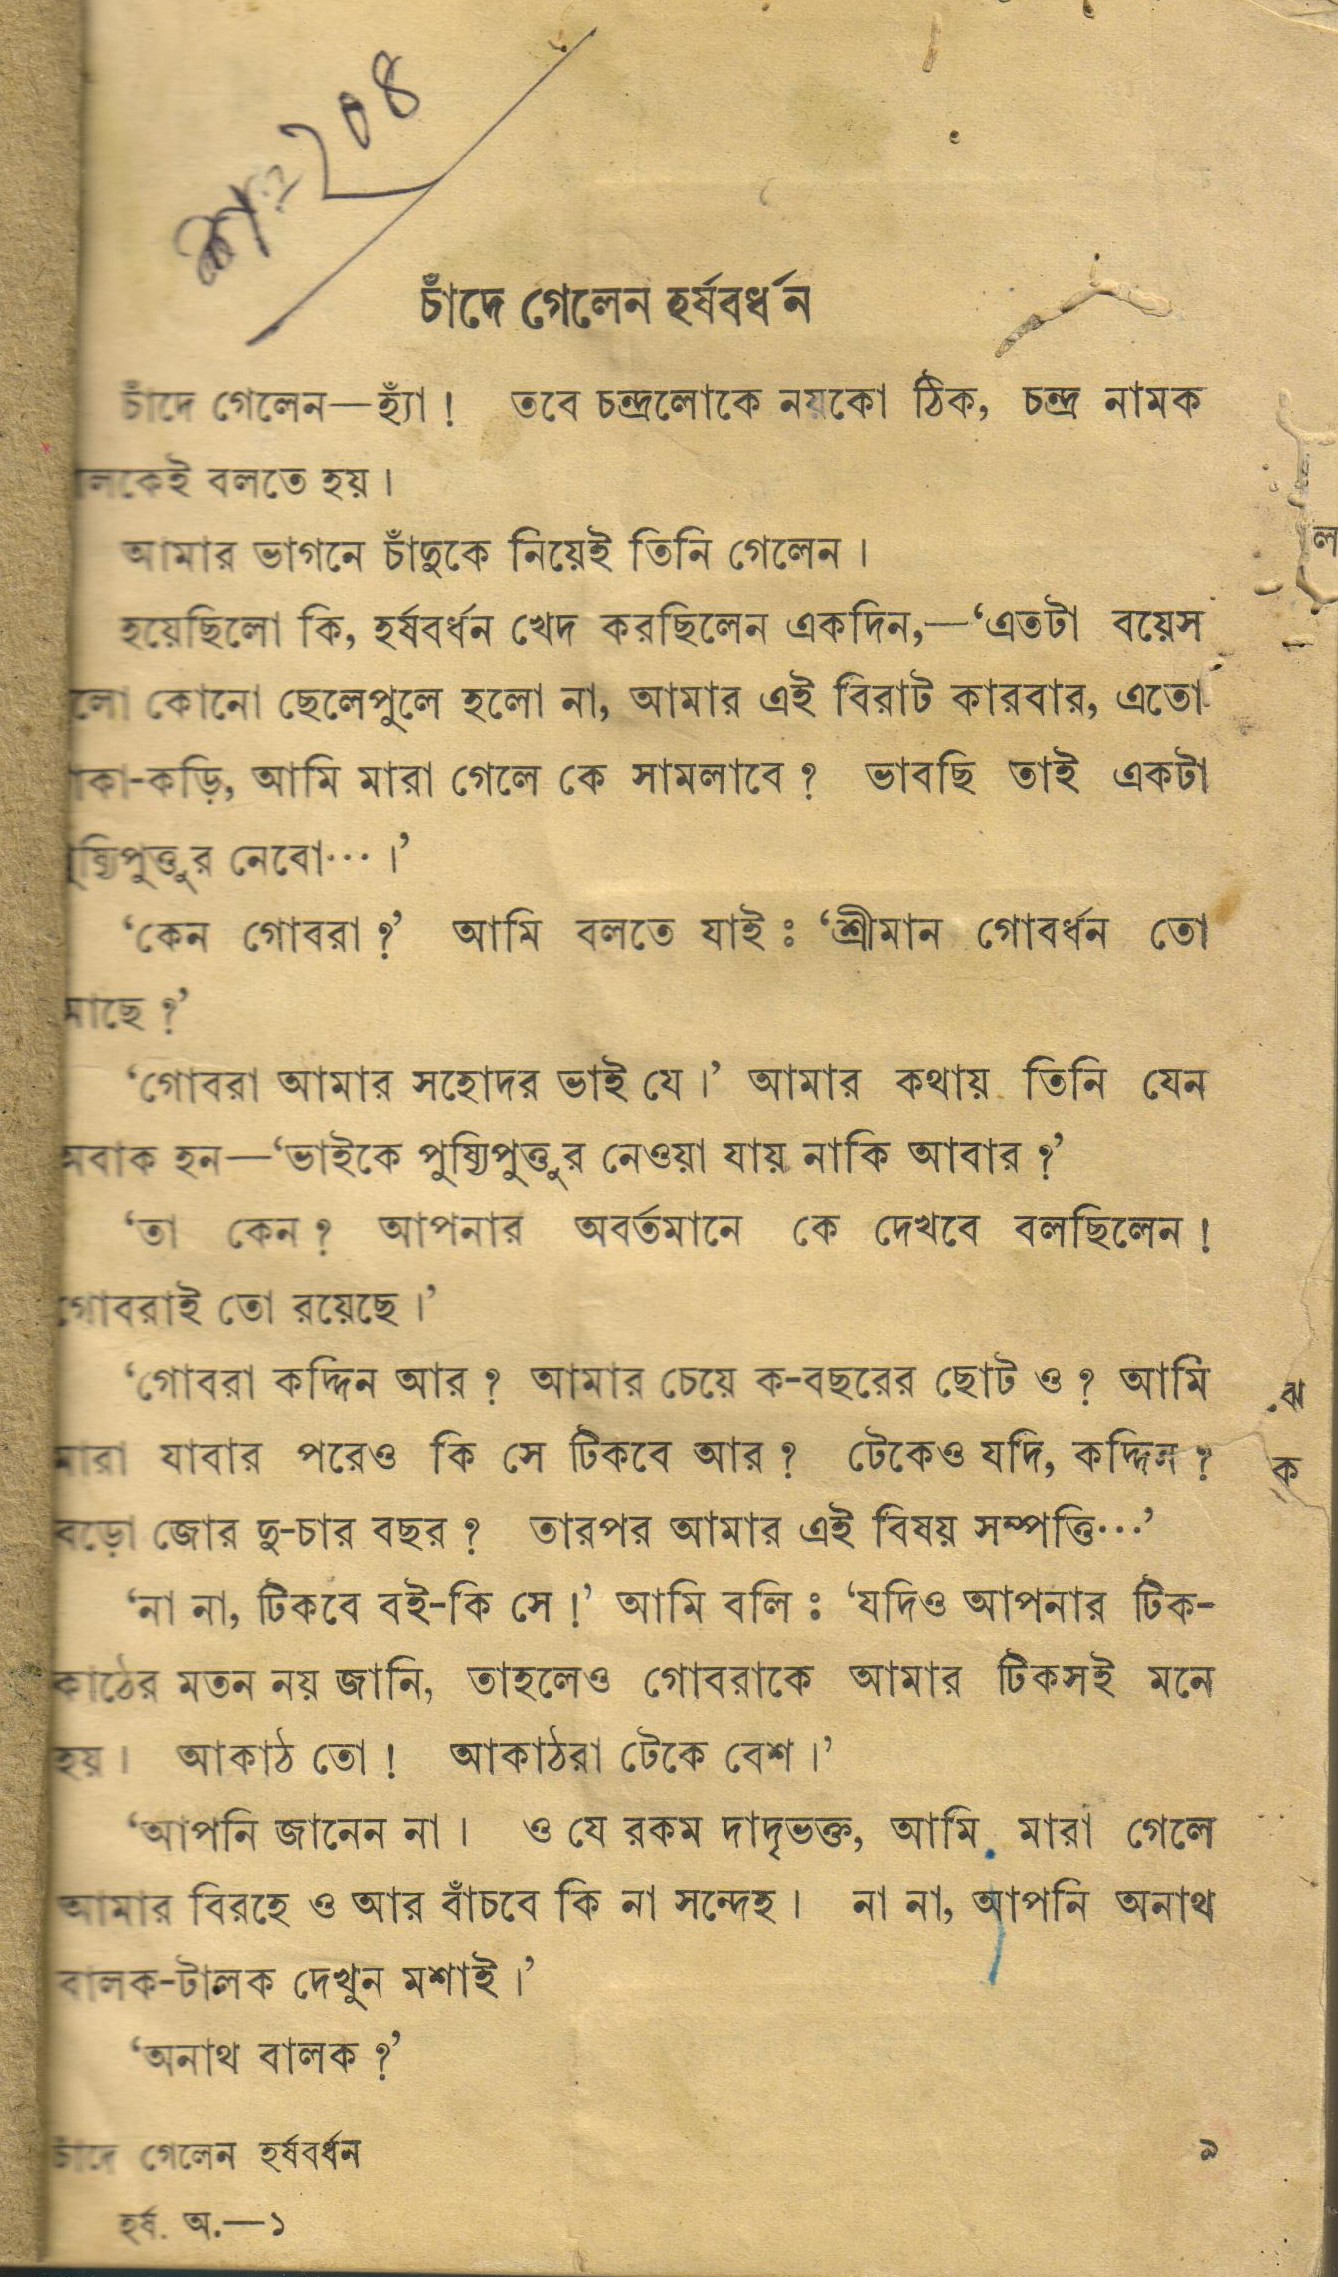 ২০৪
চাঁদে গেলেন হর্ষবর্ধন
চাঁদে গেলেন—হ্যাঁ! তবে চন্দ্রলোকে নয়কো ঠিক, চন্দ্র নামক
লকেই বলতে হয়।
আমার ভাগনে চাঁদুকে নিয়েই তিনি গেলেন।
হয়েছিলো কি, হর্ষবর্ধন খেদ করছিলেন একদিন,—‘এতটা বয়েস
লো কোনো ছেলেপুলে হলো না, আমার এই বিরাট কারবার, এতো
াকা-কড়ি, আমি মারা গেলে কে সামলাবে? ভাবছি তাই একটা
পুষ্যিপুত্তুর নেবো···।’
‘কেন গোবরা?’ আমি বলতে যাই: ‘শ্রীমান গোবর্ধন তো
আছে?’
‘গোবরা আমার সহোদর ভাই যে।’ আমার কথায় তিনি যেন
অবাক হন—‘ভাইকে পুষ্যিপুত্তুর নেওয়া যায় নাকি আবার?’
‘তা কেন? আপনার অবর্তমানে কে দেখবে বলছিলেন!
গোবরাই তো রয়েছে।’
‘গোবরা কদ্দিন আর? আমার চেয়ে ক-বছরের ছোট ও? আমি
মারা যাবার পরেও কি সে টিকবে আর? টেকেও যদি, কদ্দিন?
বড়ো জোর দু-চার বছর? তারপর আমার এই বিষয় সম্পত্তি···’
‘না না, টিকবে বই-কি সে!’ আমি বলি: ‘যদিও আপনার টিক-
কাঠের মতন নয় জানি, তাহলেও গোবরাকে আমার টিকসই মনে
হয়। আকাঠ তো! আকাঠরা টেকে বেশ।’
‘আপনি জানেন না। ও যে রকম দাদৃভক্ত, আমি মারা গেলে
আমার বিরহে ও আর বাঁচবে কি না সন্দেহ। না না, আপনি অনাথ
বালক-টালক দেখুন মশাই।’
‘অনাথ বালক?’
চাঁদে গেলেন হর্ষবর্ধন ৯
হর্ষ. অ.—১
ল
ঝ
ক